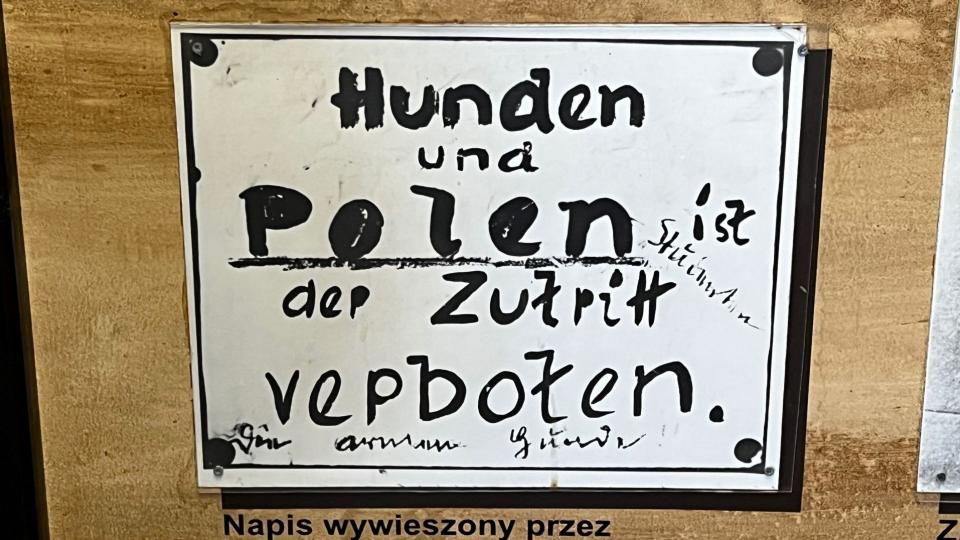 Hunden
und
Polen ist
der Zutritt
verboten.
Die armen Hunde
Napis wywieszony przez
Z